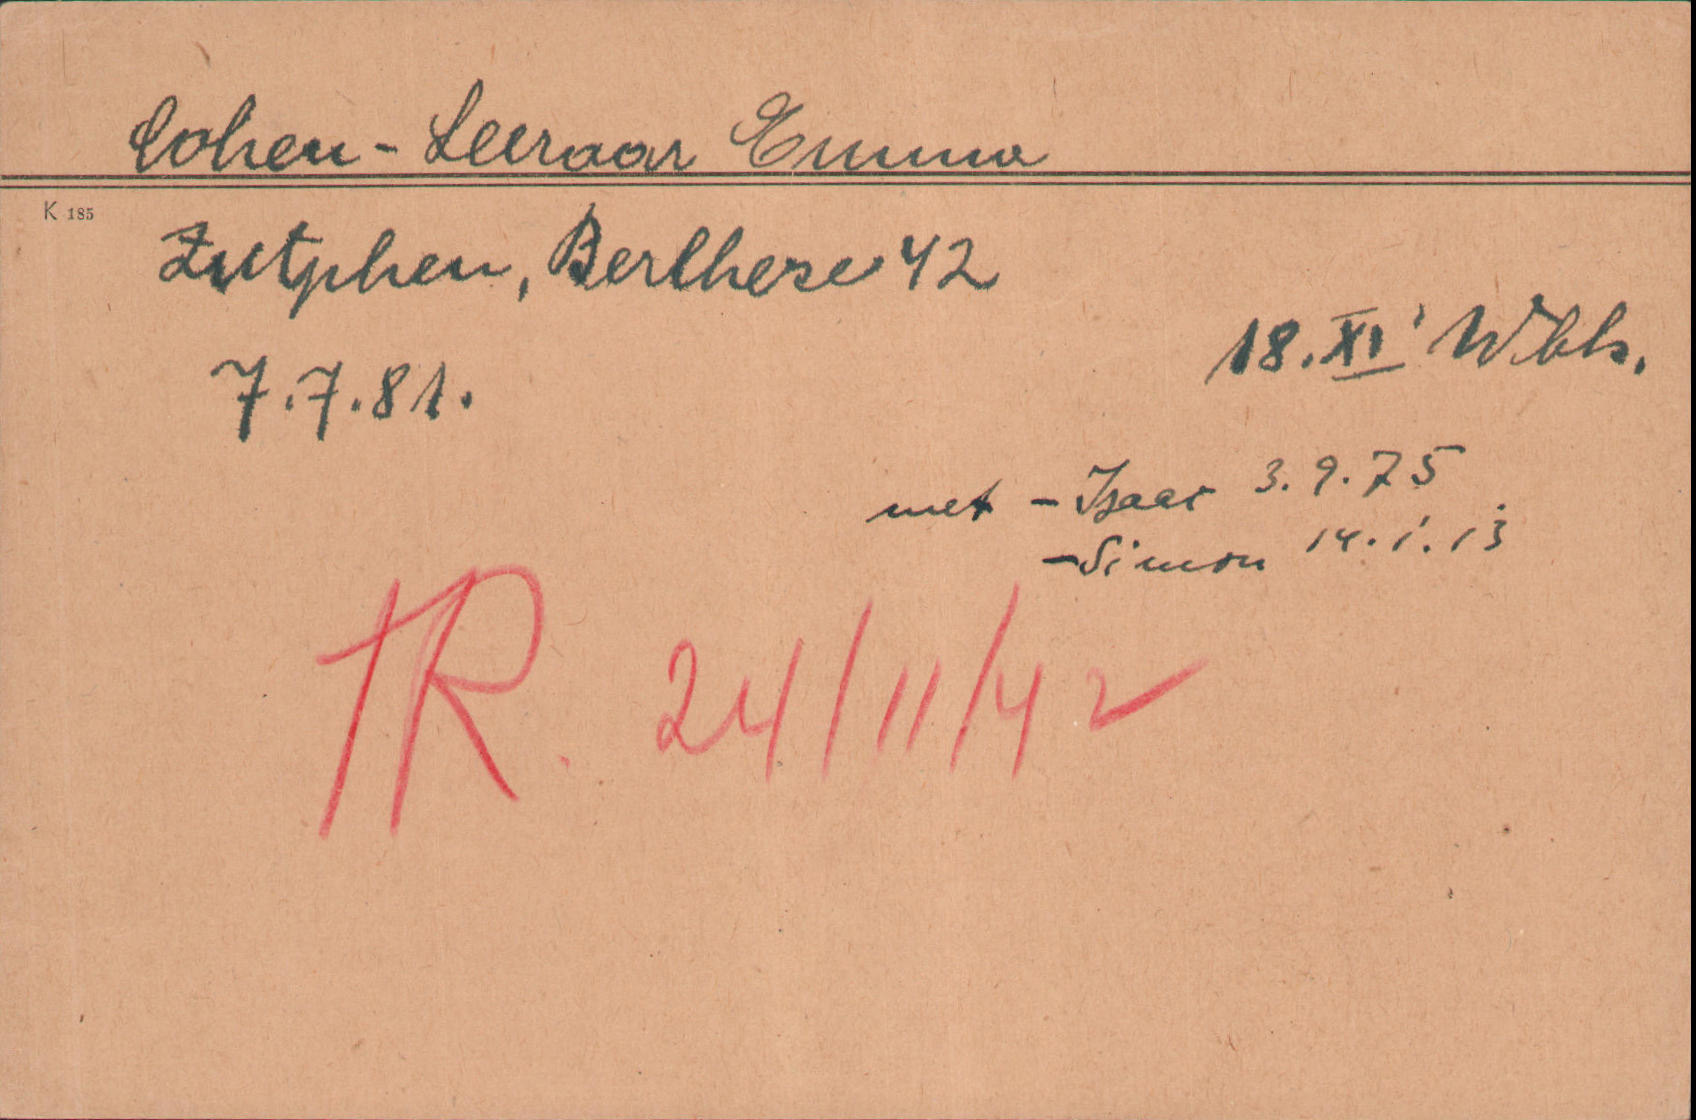 Cohen - Leeraar Emma
K 185
Zutphen, Berlhese 42
18.XI' Wbk.
7.7.81.
met - Isaac 3.9.75
- Simon 14.1.13
TR. 24/11/42